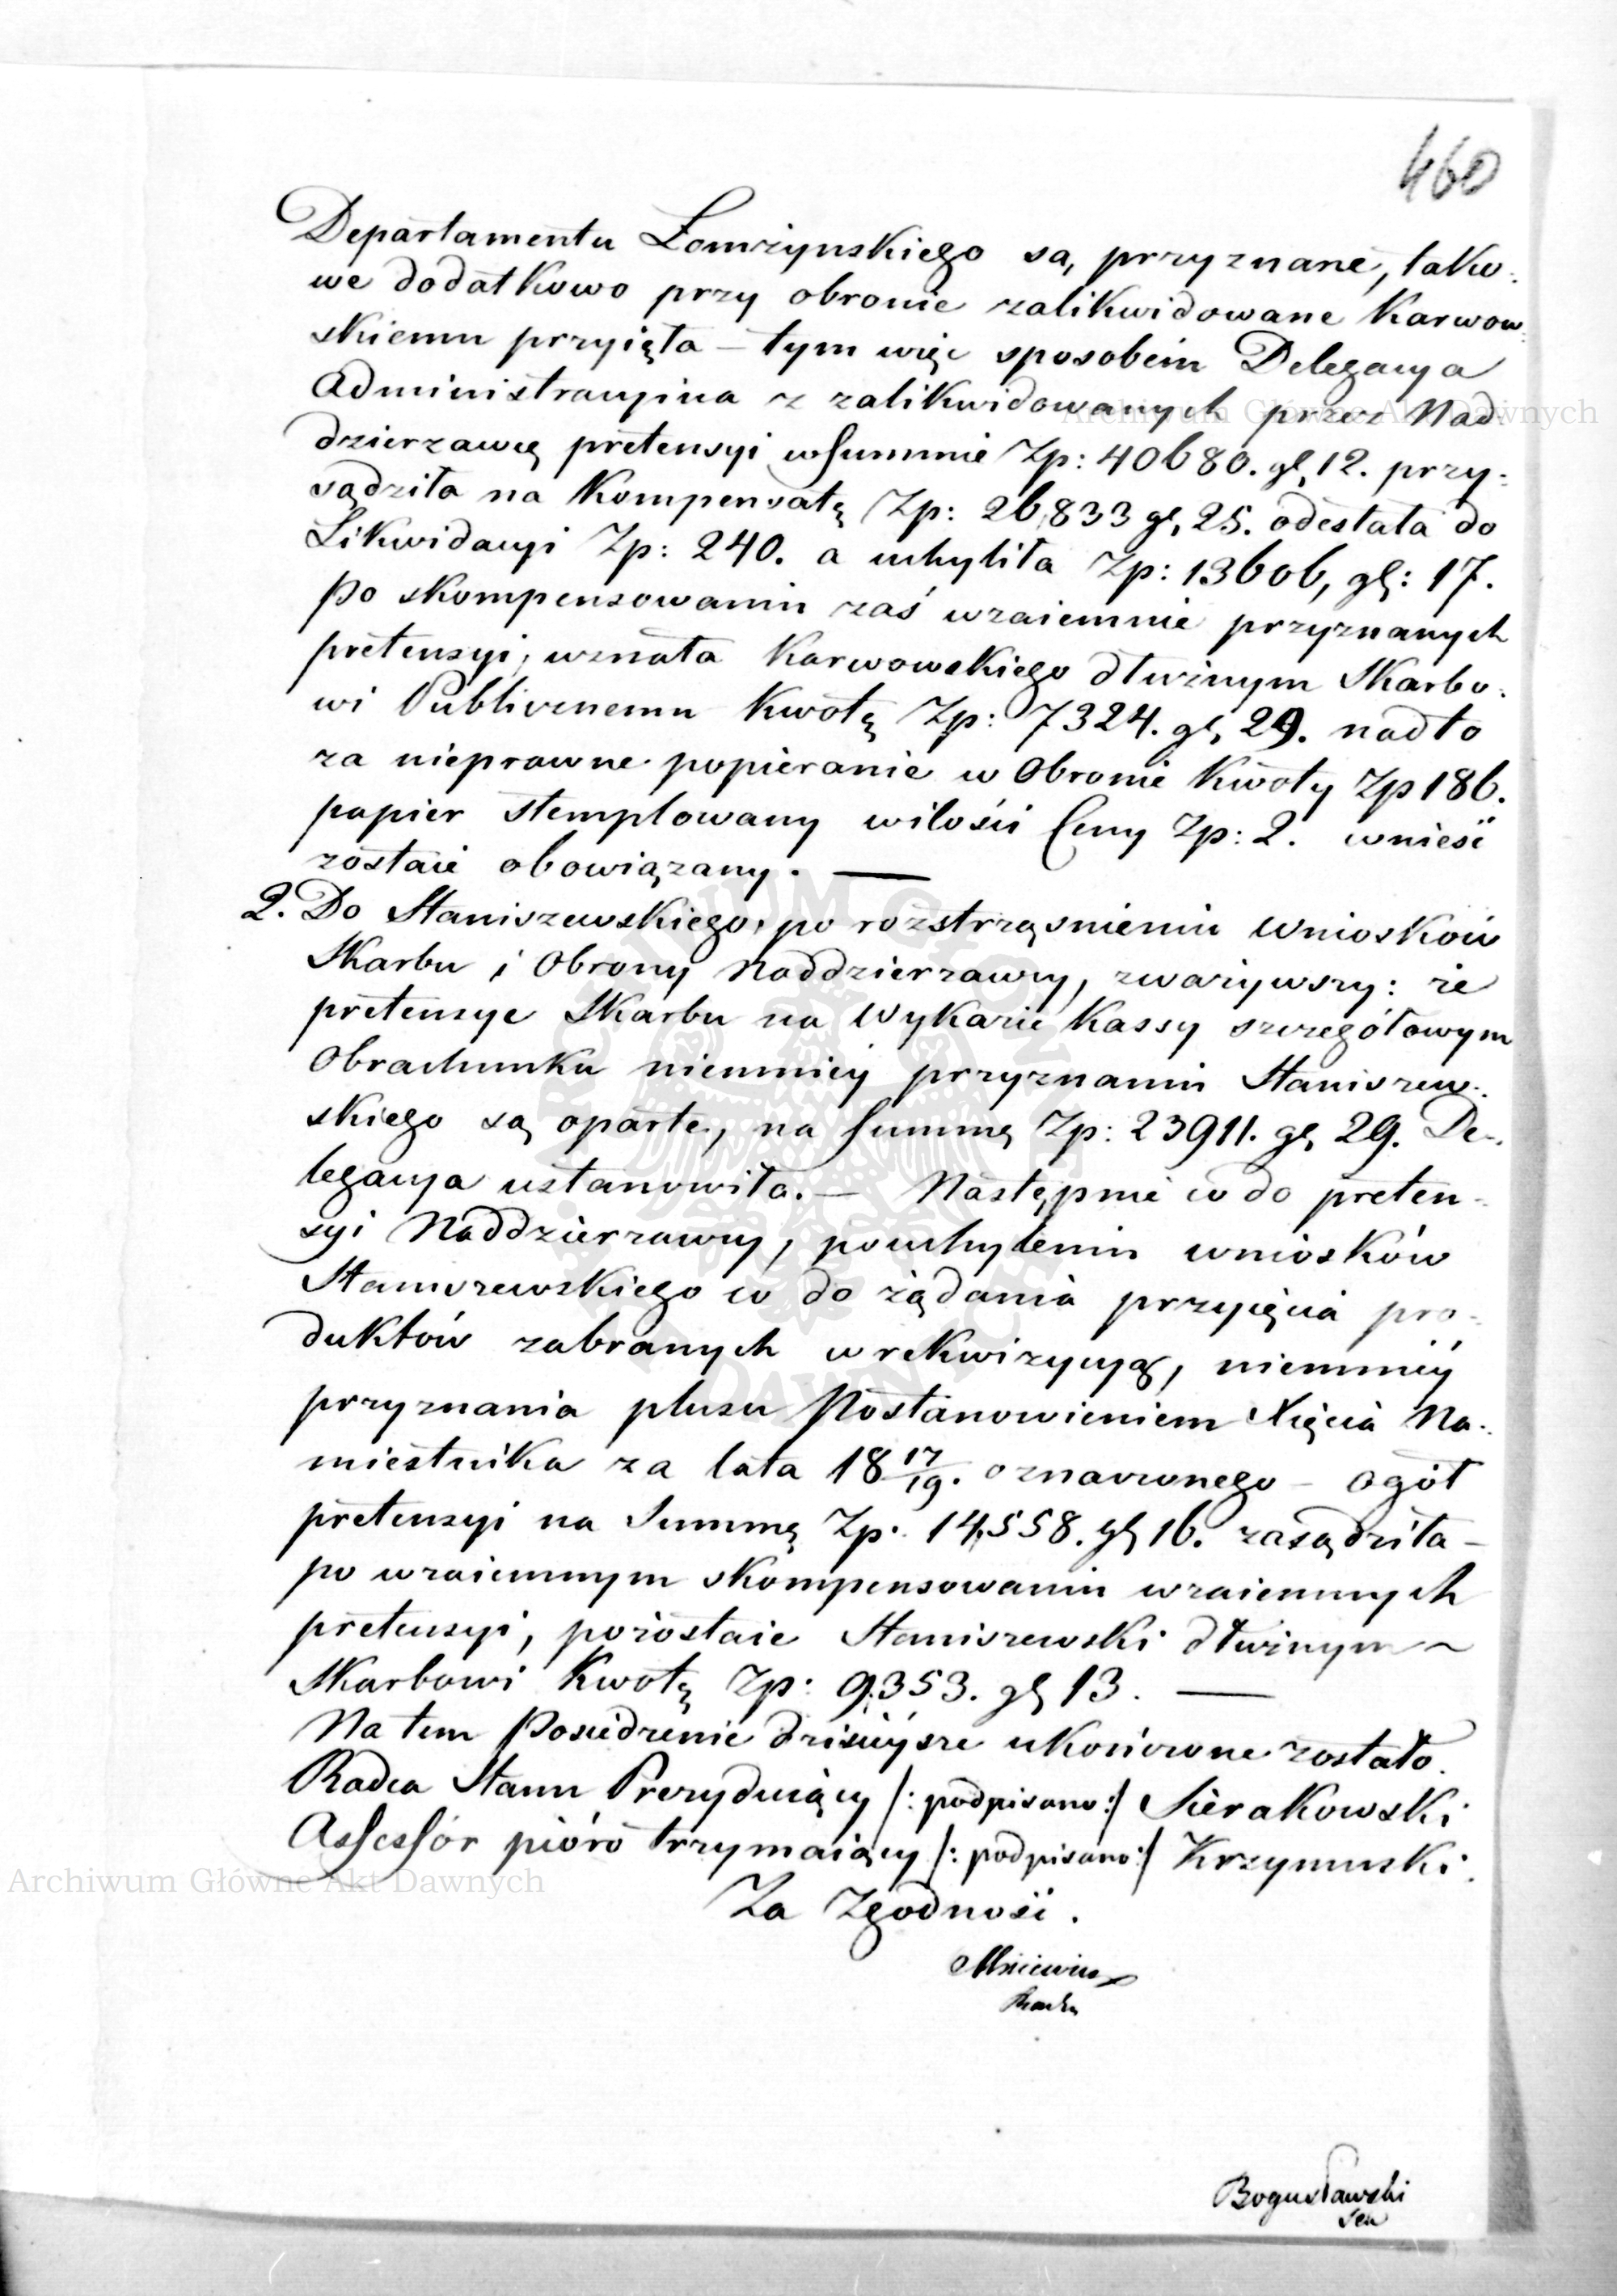 460
Departamentu Łomżynskiego są, przyznane, tako:
we dodatkowo przy obronie zalikwidowane Karwow:
skiemu przyięta – tym więc sposobem Delegacya
Administracyina z zalikwidowanych przez Nad:
dzierzawcę pretensyi w Summie Zp: 40680. gl, 12. przy:
sądziła na Kompensatę Zp: 26,833 gl, 25. odesłała do
Likwidacyi Zp: 240. a uchyliła Zp: 13606, gl: 17.
Po skompensowaniu zaś wzaiemnie przyznanych
pretensyi, uznała Karwowskiego dłużnym Skarbo:
wi Publicznemu Kwotę Zp: 7324. gl, 29. nadto
za nieprawne popieranie w Obronie Kwoty Zp 186.
papier stemplowany wilości Ceny Zp: 2. wnieść
zostaie obowiązany. —
2. Do Staniszewskiego, po rozstrząśnieniu Wniosków
Skarbu i Obrony Naddzierzawcy, zważywszy: że
pretensye Skarbu na Wykazie Kassy szczegółowym
Obrachunku niemniey przyznaniu Staniszew:
skiego są oparte, na Summę Zp: 23911. gl, 29. De-
legacya ustanowiła. – Następnie co do preten-
syi Naddzierzawcy, pouchyleniu wniosków
Staniszewskiego co do żądania przyięcia pro-
duktów zabranych w rekwizycyą, niemniéy
przyznania plusu Postanowieniem Xięcia Na:
miestnika za lata 18 17/19. oznaczonego – ogół
pretensyi na Summę Zp. 14,558. gl, 16. zasądziła –
po wzaiemnym skompensowaniu wzaiemnych
pretensyi, pozostaie Staniszewski dłużnym ~
Skarbowi Kwotę Zp: 9,353. gl, 13. —
Na tem Posiedzenie dzisiéysze ukończone zostało.
Radca Stanu Prezyduiący /: podpisano :/ Sierakowski
Assessor pióro trzymaiący /: podpisano :/ Krzymuski.
Za Zgodność.
Bogusławski